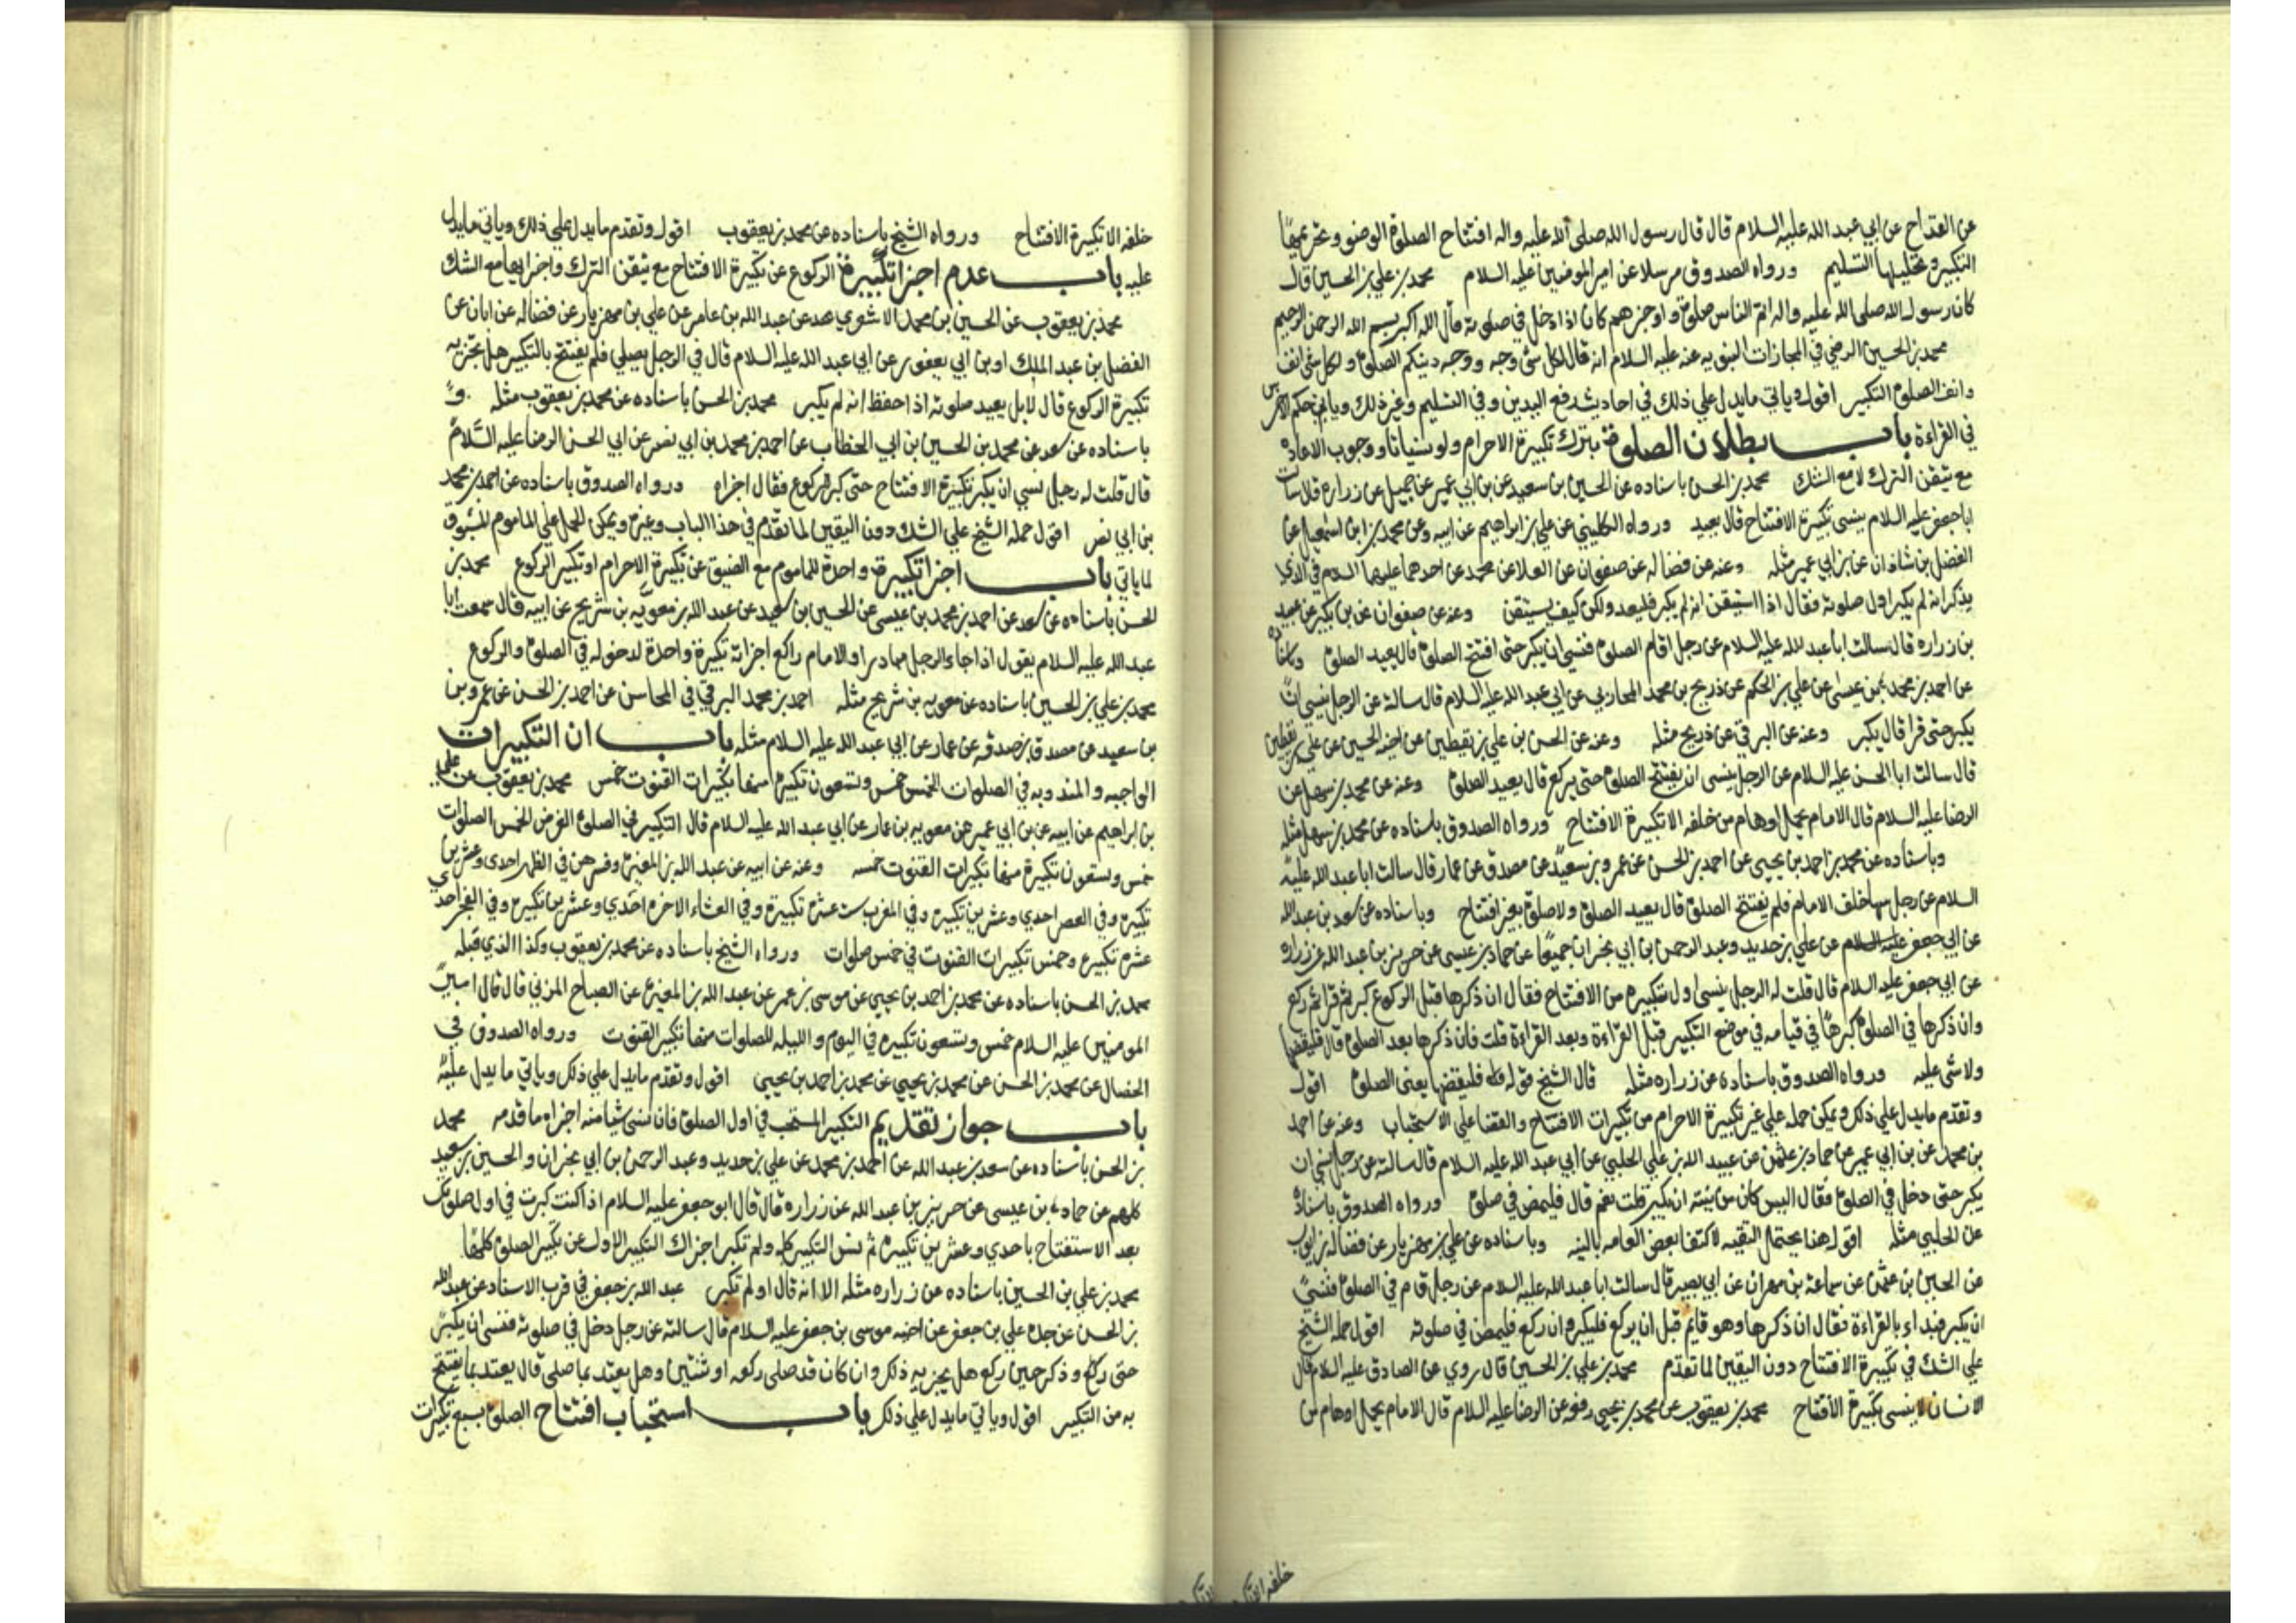 عن القداح عن ابي عبد الله عليه السلام قال قال رسول الله صلى الله عليه واله افتتاح الصلوة الوضو وتحريمها
التكبير وتحليلها التسليم ورواه الصدوق مرسلا عن امير المومنين عليه السلام محمد بن علي بن الحسين قال
كان رسول الله صلى الله عليه واله اتم الناس صلوة واوجزهم كان اذا دخل في صلوته قال الله اكبر بسم الله الرحمن الرحيم
محمد بن الحسين الرضي في المجازات النبويه عنه عليه السلام انه قال لكل شئ وجه ووجه دينكم الصلوة ولكل شئ انف
وانف الصلوة التكبير اقول وياتي مايدل علي ذلك في احاديث رفع اليدين وفي التسليم وغير ذلك وياتي حكم الاخرس
في القراءة باب بطلان الصلوة بترك تكبيرة الاحرام ولو نسيانا ووجوب الاعاده
مع تيقن الترك لا مع الشك محمد بن الحسن باسناده عن الحسين بن سعيد عن بن ابي عمير عن جميل عن زراره قال سالت
ابا جعفر عليه السلام ينسى تكبيرة الافتتاح قال يعيد ورواه الكليني عن علي بن ابراهيم عن ابيه وعن محمد بن اسمعيل عن
الفضل بن شاذان عن بن ابي عمير مثله وعنه عن فضاله عن صفوان عن العلا عن محمد عن احدهما عليهما السلام في الذي
يذكر انه لم يكبر اول صلوته فقال اذا استيقن انه لم يكبر فليعد ولكن كيف يستيقن وعنه عن صفوان عن بن بكير عن عبيد
بن زراره قال سالت ابا عبد الله عليه السلام عن رجل اقام الصلوة فنسي ان يكبر حتى افتتح الصلوة قال يعيد الصلوة وباسناده
عن احمد بن محمد بن عيسى عن علي بن الحكم عن ذريح بن محمد المحاربي عن ابي عبد الله عليه السلام قال سالته عن الرجل ينسى ان
يكبر حتى قرا قال يكبر وعنه عن البرقي عن ذريح مثله وعنه عن الحسن بن علي بن يقطين عن اخيه الحسين عن علي بن يقطين
قال سالت ابا الحسن عليه السلام عن الرجل ينسى ان يفتتح الصلوة حتى يركع قال يعيد الصلوة وعنه عن محمد بن سهل عن
الرضا عليه السلام قال الامام يحمل اوهام من خلفه الا تكبيرة الافتتاح ورواه الصدوق باسناده عن محمد بن سهل مثله
وباسناده عن محمد بن احمد بن يحيى عن احمد بن الحسن عن عمرو بن سعيد عن مصدق عن عمار قال سالت ابا عبد الله عليه
السلام عن رجل سها خلف الامام فلم يفتتح الصلوة قال يعيد الصلوة ولا صلوة بغير افتتاح وباسناده عن سعد بن عبد الله
عن ابي جعفر عليه السلام عن علي بن حديد وعبد الرحمن بن ابي نجران جميعا عن حماد بن عيسى عن حريز بن عبد الله عن زراره
عن ابي جعفر عليه السلام قال قلت له الرجل ينسى اول تكبيره من الافتتاح فقال ان ذكرها قبل الركوع كبر ثم قرا ثم ركع
وان ذكرها في الصلوة كبرها في قيامه في موضع التكبير قبل القراءة وبعد القراءة قلت فان ذكرها بعد الصلوة قال فليقضها
ولا شئ عليه ورواه الصدوق باسناده عن زراره مثله قال الشيخ قوله فليقضها يعنى الصلوة اقول
وتقدم مايدل علي ذلك ويمكن حمله علي غير تكبيرة الاحرام من تكبيرات الافتتاح والقضا علي الاستحباب وعنه عن احمد
بن محمد عن بن ابي عمير عن حماد بن عثمن عن عبيد الله بن علي الحلبي عن ابي عبد الله عليه السلام قال سالته عن رجل نسي ان
يكبر حتى دخل في الصلوة فقال اليس كان من نيته ان يكبر قلت نعم قال فليمض في صلوة ورواه الصدوق باسناده
عن الحلبي مثله اقول هذا يحتمل التقيه لاكتفا بعض العامه بالنيه وباسناده عن علي بن مهزيار عن فضاله بن ايوب
عن الحسين بن عثمن عن سماعة بن مهران عن ابي بصير قال سالت ابا عبد الله عليه السلام عن رجل قام في الصلوة فنسي
ان يكبر فبداء بالقراءة فقال ان ذكرها وهو قايم قبل ان يركع فليكبر وان ركع فليمض في صلوته اقول حمله الشيخ
علي الشك في تكبيرة الافتتاح دون اليقين لما تقدم محمد بن علي بن الحسين قال روي عن الصادق عليه السلام قال
الانسان لا ينسى تكبيرة الافتتاح محمد بن يعقوب عن محمد بن يحيى رفعه عن الرضا عليه السلام قال الامام يحمل اوهام من
خلفه
خلفه الا تكبيرة الافتتاح ورواه الشيخ باسناده عن محمد بن يعقوب اقول وتقدم مايدل علي ذلك وياتي مايدل
عليه باب عدم اجزا تكبيرة الركوع عن تكبيرة الافتتاح مع تيقن الترك واجزايها مع الشك
محمد بن يعقوب عن الحسين بن محمد الاشعري عن عبد الله بن عامر عن علي بن مهزيار عن فضاله عن ابان عن
الفضل بن عبد الملك او بن ابي يعفور عن ابي عبد الله عليه السلام قال في الرجل يصلي فلم يفتتح بالتكبير هل تجزيه
تكبيرة الركوع قال لا بل يعيد صلوته اذا حفظ انه لم يكبر محمد بن الحسن باسناده عن محمد بن يعقوب مثله و
باسناده عن سعد عن محمد بن الحسين بن ابي الخطاب عن احمد بن محمد بن ابي نصر عن ابي الحسن الرضا عليه السلام
قال قلت له رجل نسي ان يكبر تكبيرة الافتتاح حتى كبر للركوع فقال اجزاه ورواه الصدوق باسناده عن احمد بن محمد
بن ابي نصر اقول حمله الشيخ علي الشك دون اليقين لما تقدم في هذا الباب وغيره ويمكن الحمل علي الماموم المسبوق
لما ياتي باب اجزا تكبيرة واحدة للماموم مع الضيق عن تكبيرة الاحرام او تكبير الركوع محمد بن
الحسن باسناده عن سعد عن احمد بن محمد بن عيسى عن الحسين بن سعيد عن عبد الله بن معويه بن شريح عن ابيه قال سمعت ابا
عبد الله عليه السلام يقول اذا جاء الرجل مبادرا والامام راكع اجزاته تكبيرة واحدة لدخوله في الصلوة والركوع
محمد بن علي بن الحسين باسناده عن معويه بن شريح مثله احمد بن محمد البرقي في المحاسن عن احمد بن الحسن عن عمرو بن
بن سعيد عن مصدق بن صدقه عن عمار عن ابي عبد الله عليه السلام مثله باب ان التكبيرات
الواجبه والمندوبه في الصلوات الخمس خمس وتسعون تكبيره منها تكبيرات القنوت خمس محمد بن يعقوب عن علي
بن ابراهيم عن ابيه عن بن ابي عمير عن معويه بن عمار عن ابي عبد الله عليه السلام قال التكبير في الصلوة الفرض الخمس الصلوات
خمس وتسعون تكبيرة منها تكبيرات القنوت خمسه وعنه عن ابيه عن عبد الله بن المغيره وفسرهن في الظهر احدى وعشرين
تكبيره وفي العصر احدي وعشرين تكبيره وفي المغرب ست عشرة تكبيرة وفي العشاء الاخره احدي وعشرين تكبيره وفي الفجر احدي
عشره تكبيره وخمس تكبيرات القنوت في خمس صلوات ورواه الشيخ باسناده عن محمد بن يعقوب وكذا الذي قبله
محمد بن الحسن باسناده عن محمد بن احمد بن يحيي عن موسى بن عمر عن عبد الله بن المغيره عن الصباح المزني قال قال امير
المومنين عليه السلام خمس وتسعون تكبيره في اليوم والليله للصلوات منها تكبير القنوت ورواه الصدوق في
الخصال عن محمد بن الحسن عن محمد بن يحيي عن محمد بن احمد بن يحيي اقول وتقدم مايدل علي ذلك وياتي ما يدل عليه
باب جواز تقديم التكبير المستحب في اول الصلوة فان نسى شيا منه اجزاه ما قدمه محمد
بن الحسن باسناده عن سعد بن عبد الله عن احمد بن محمد عن علي بن حديد وعبد الرحمن بن ابي نجران والحسين بن سعيد
كلهم عن حماد بن عيسى عن حريز بن عبد الله عن زراره قال قال ابو جعفر عليه السلام اذا كنت كبرت في اول صلوتك
بعد الاستفتاح باحدي وعشرين تكبيره ثم نسيت التكبير كله ولم تكبر اجزاك التكبير الاول عن تكبير الصلوة كلها
محمد بن علي بن الحسين باسناده عن زراره مثله الا انه قال او لم تكبر عبد الله بن جعفر في قرب الاسناد عن عبد الله
بن الحسن عن جده علي بن جعفر عن اخيه موسى بن جعفر عليه السلام قال سالته عن رجل دخل في صلوته فنسى ان يكبر
حتى ركع وذكر حين ركع هل يجزيه ذلك وان كان قد صلى ركعه او ثنتين وهل يعتد بما صلى قال يعتد بما يفتتح
به من التكبير اقول وياتي مايدل علي ذلك باب استحباب افتتاح الصلوة بسبع تكبيرات